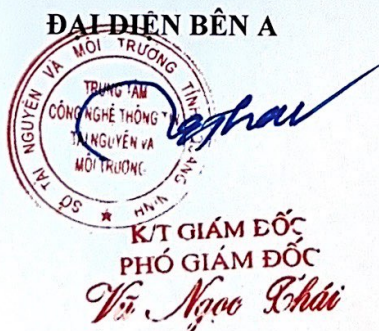 ĐẠI DIỆN BÊN A
SỞ TÀI NGUYÊN VÀ MÔI TRƯỜNG TỈNH
TRUNG TÂM
CÔNG NGHỆ THÔNG TIN
TÀI NGUYÊN VÀ
MÔI TRƯỜNG
K/T GIÁM ĐỐC
PHÓ GIÁM ĐỐC
Vũ Ngọc Thái